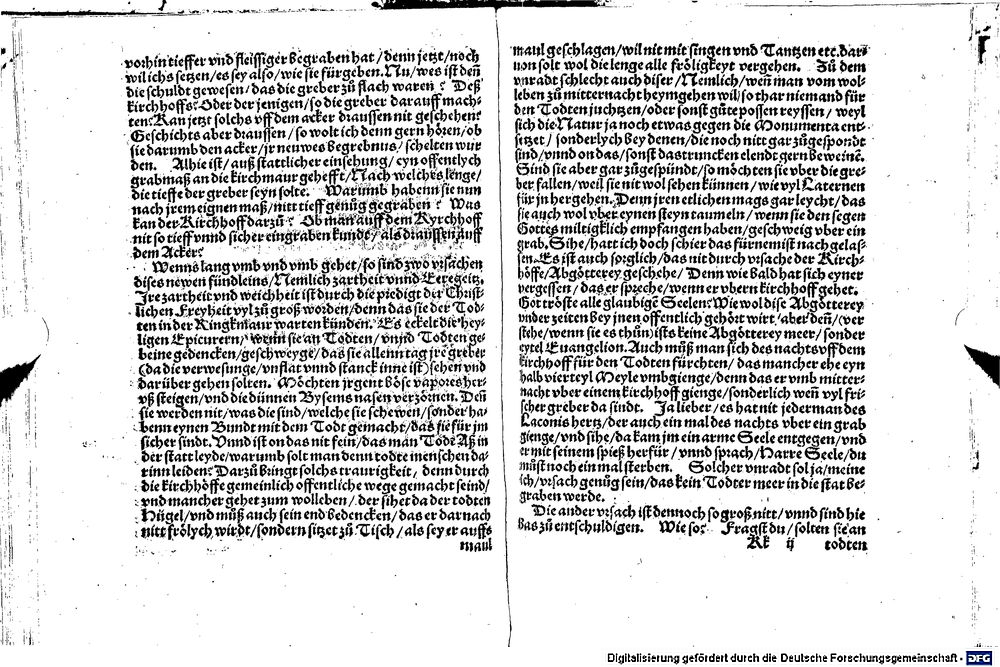 vorhin tieffer vnd fleissiger begraben hat / denn jetzt / noch
wil ichs setzen / es sey also / wie sie fürgeben. Nu / wes ist deñ
die schuldt gewesen / das die greber zů flach waren? Deß
kirchhoffs: Oder der jenigen / so die greber darauff mach-
ten: Kan jetzt solchs vff dem acker draussen nit geschehen?
Geschichts aber draussen / so wolt ich denn gern hören / ob
sie darumb den acker / jr neuwes begrebnus / schelten wür
den. Alhie ist / auß stattlicher einsehung / eyn offentlych
grabmaß an die kirchmaur gehefft / Nach welches lenge /
die tieffe der greber seyn solte. Warumb habenn sie nun
nach jrem eignen maß / nitt tieff genůg gegraben? Was
kan der Kirchhoff darzů? Ob man auff dem Kyrchhoff
nit so tieff vnnd sicher eingraben kundt / als draussen auff
dem Acker?
Wenns lang vmb vnd vmb gehet / so sind zwo vrsachen
dises newen fündleins / Nemlich zartheit vnnd Eeregeitz.
Ire zartheit vnd weichheit ist durch die predigt der Christ-
lichen Freyheit vyl zů groß worden / denn das sie der Tod-
ten in der Ringkmaur warten künden. Es eckelt die hey-
ligen Epicurern / wenn sie an Todten / vnnd Todten ge-
beine gedencken / geschweyge / das sie allenn tag jre greber
(da die verwesunge / vnflat vnnd stanck inne ist) sehen vnd
darüber gehen solten. Möchten jrgent böse vapores her-
vß steigen / vnd die dünnen Bysems nasen verzörnen. Deñ
sie werden nit / was die sind / welche sie schewen / sonder ha-
benn eynen Bundt mit dem Todt gemacht / das sie für jm
sicher sindt. Vnnd ist on das nit fein / das man Tode Aß in
der statt leyde / warumb solt man denn todte menschen da-
rinn leiden? Darzů bringt solchs traurigkeit / denn durch
die kirchhöffe gemeinlich offentliche wege gemacht seind /
vnd mancher gehet zum wolleben / der sihet da der todten
Hügel / vnd můß auch sein end bedencken / das er darnach
nitt frölych wirdt / sondern sitzet zů Tisch / als sey er auffs
maul
maul geschlagen / wil nit mit singen vnd Tantzen etc. dar-
uon solt wol die lenge alle fröligkeyt vergehen. Zů dem
vnradt schlecht auch diser / Nemlich / weñ man vom wol-
leben zů mitternacht heymgehen wil / so thar niemand für
den Todten juchtzen / oder sonst gůte possen reyssen / weyl
sich die Natur ja noch etwas gegen die Monumenta ent-
setzet / sonderlych bey denen / die noch nitt gar zůgespöndt
sind / vnnd on das / sonst das truncken elendt gern beweinẽ.
Sind sie aber gar zůgespündt / so möchten sie vber die gre-
ber fallen / weil sie nit wol sehen künnen / wie vyl Laternen
für jn hergehen. Denn jren etlichen mags gar leycht / das
sie auch wol vber eynen steyn taumeln / wenn sie den segen
Gottes miltigklich empfangen haben / geschweig vber ein
grab. Sihe / hatt ich doch schier das fürnemist nachgelas-
sen. Es ist auch sorglich / das nit durch vrsache der Kirch-
höffe / Abgötterey geschehe / Denn wie bald hat sich eyner
vergessen / das er spreche / wenn er vbern kirchhoff gehet.
Got tröste alle glaubigẽ Seelen: Wie wol dise Abgötterey
vnder zeiten bey jnen offentlich gehört wirt / aber deñ / (ver
stehe / wenn sie es thůn) ists keine Abgötterey meer / sonder
eytel Euangelion. Auch můß man sich des nachts vff dem
kirchhoff für den Todten fürchten / das mancher ehe eyn
halb vierteyl Meyle vmbgienge / denn das er vmb mitter-
nacht vber einem kirchhoff gienge / sonderlich weñ vyl fri-
scher greber da sindt. Ja lieber / es hat nit jederman des
Laconis hertz / der auch ein mal des nachts vber ein grab
gienge / vnd sihe / da kam jm ein arme Seele entgegen / vnd
er mit seinem spieß herfür / vnnd sprach / Harre Seele / du
můst noch ein mal sterben. Solcher vnradt sol ja / meine
ich / vrsach genůg sein / das kein Todter meer in die stat be-
graben werde.
Die ander vrsach ist dennoch so groß nitt / vnnd sind hie
bas zů entschuldigen. Wie so? Fragst du / solten sie an
Kk ij todten
Digitalisierung gefördert durch die Deutsche Forschungsgemeinschaft - DFG